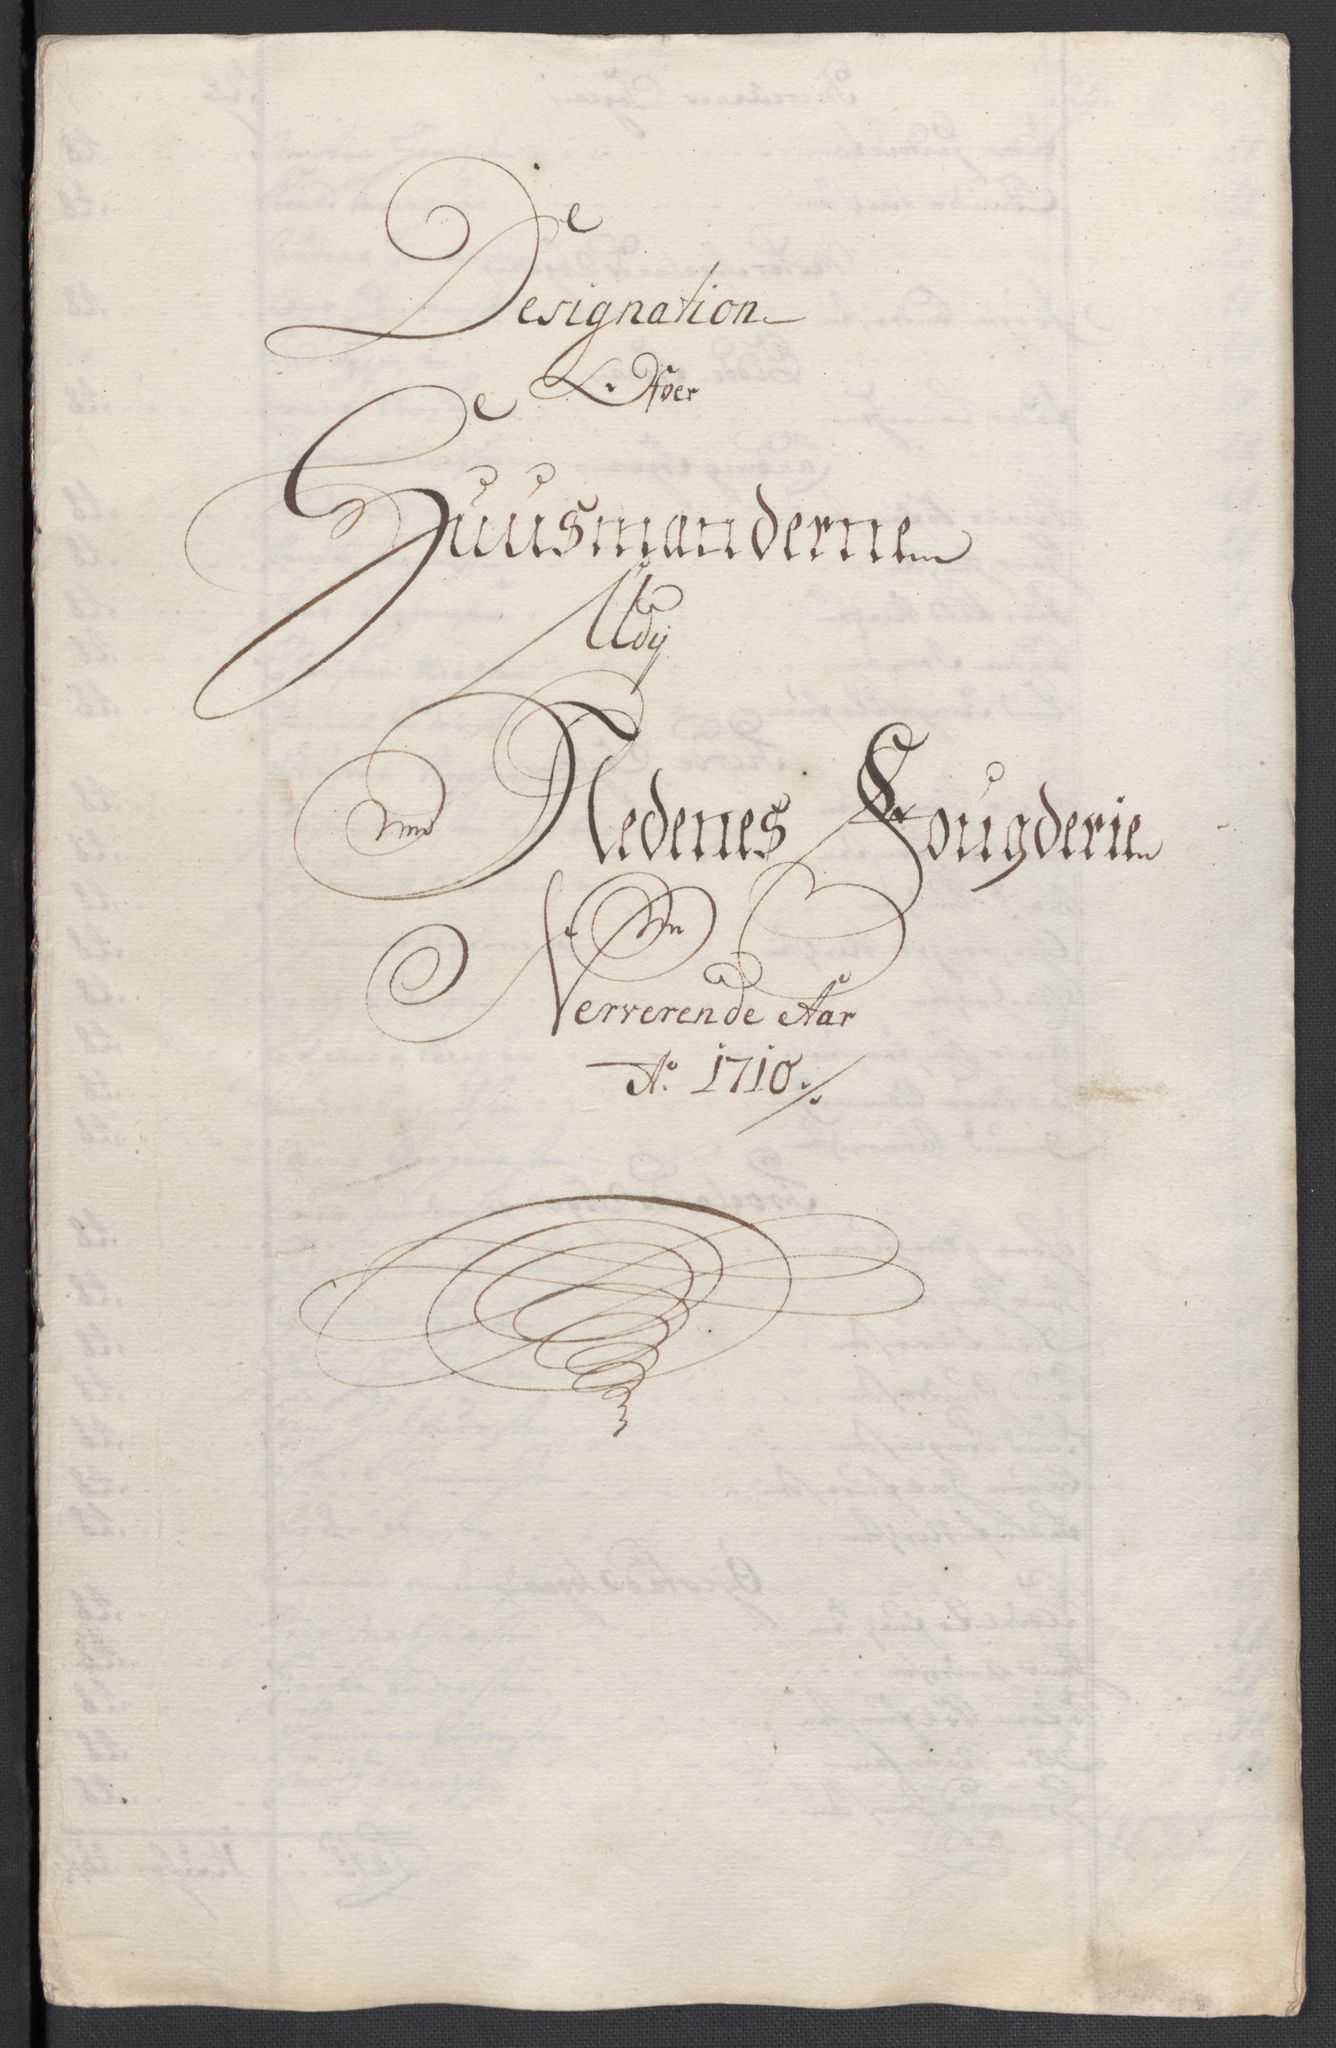 Designation
Ofver
Huusmanderne
Udj
Nedenes Fougderie
Nerverende Aar
Ao. 1710.